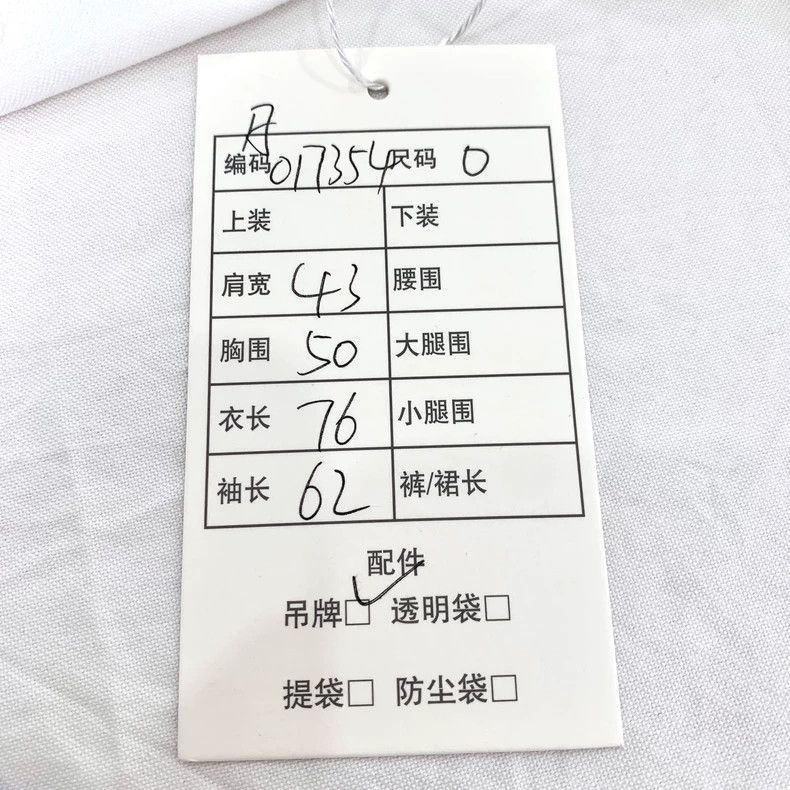 A
编码 017354 尺码 0
上装 下装
肩宽 43 腰围
胸围 50 大腿围
衣长 76 小腿围
袖长 62 裤/裙长
配件
吊牌☑ 透明袋□
提袋□ 防尘袋□